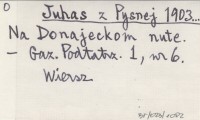 O
Juhas z Pysnej 1903...
Na Donajeckom nute.
– Gaz. Podtatrz. 1, nr 6.
Wiersz